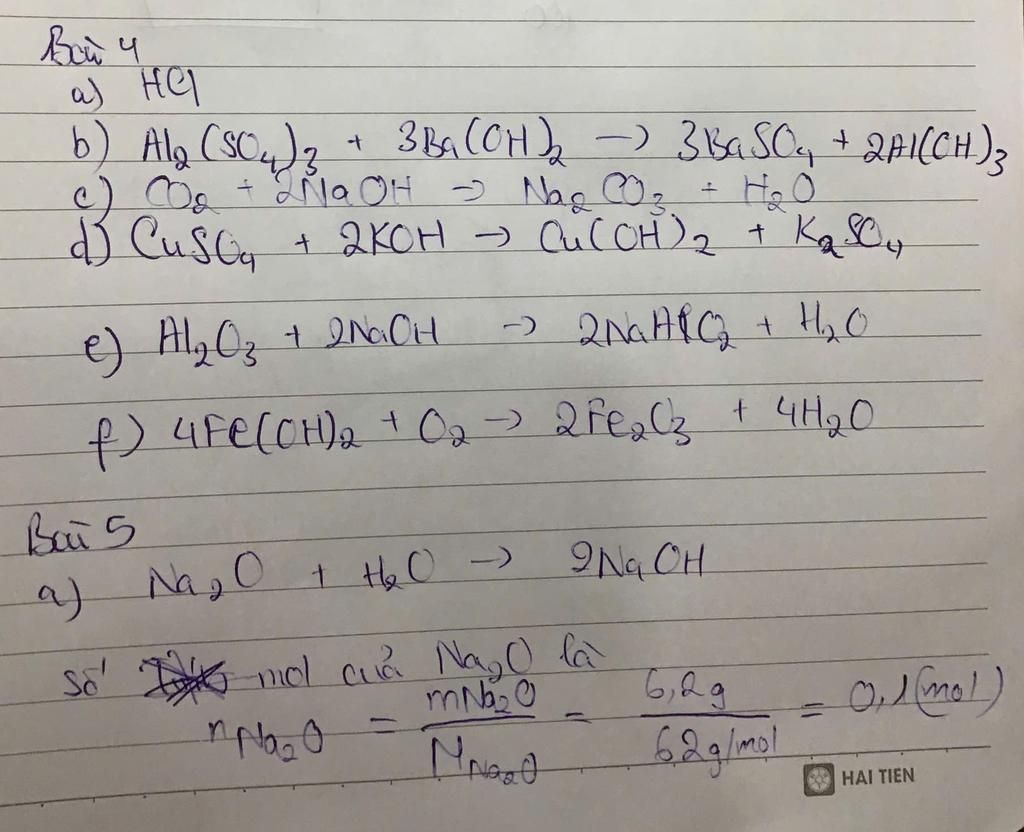 Bài 4
a) HCl
b) Al₂(SO₄)₃ + 3Ba(OH)₂ → 3BaSO₄ + 2Al(OH)₃
c) CO₂ + 2NaOH → Na₂CO₃ + H₂O
d) CuSO₄ + 2KOH → Cu(OH)₂ + K₂SO₄
e) Al₂O₃ + 2NaOH → 2NaAlO₂ + H₂O
f) 4Fe(OH)₂ + O₂ → 2Fe₂O₃ + 4H₂O
Bài 5
a) Na₂O + H₂O → 2NaOH
số mol của Na₂O là
nNa₂O = mNa₂O / MNa₂O = 6,2g / 62g/mol = 0,1 (mol)
HAI TIEN